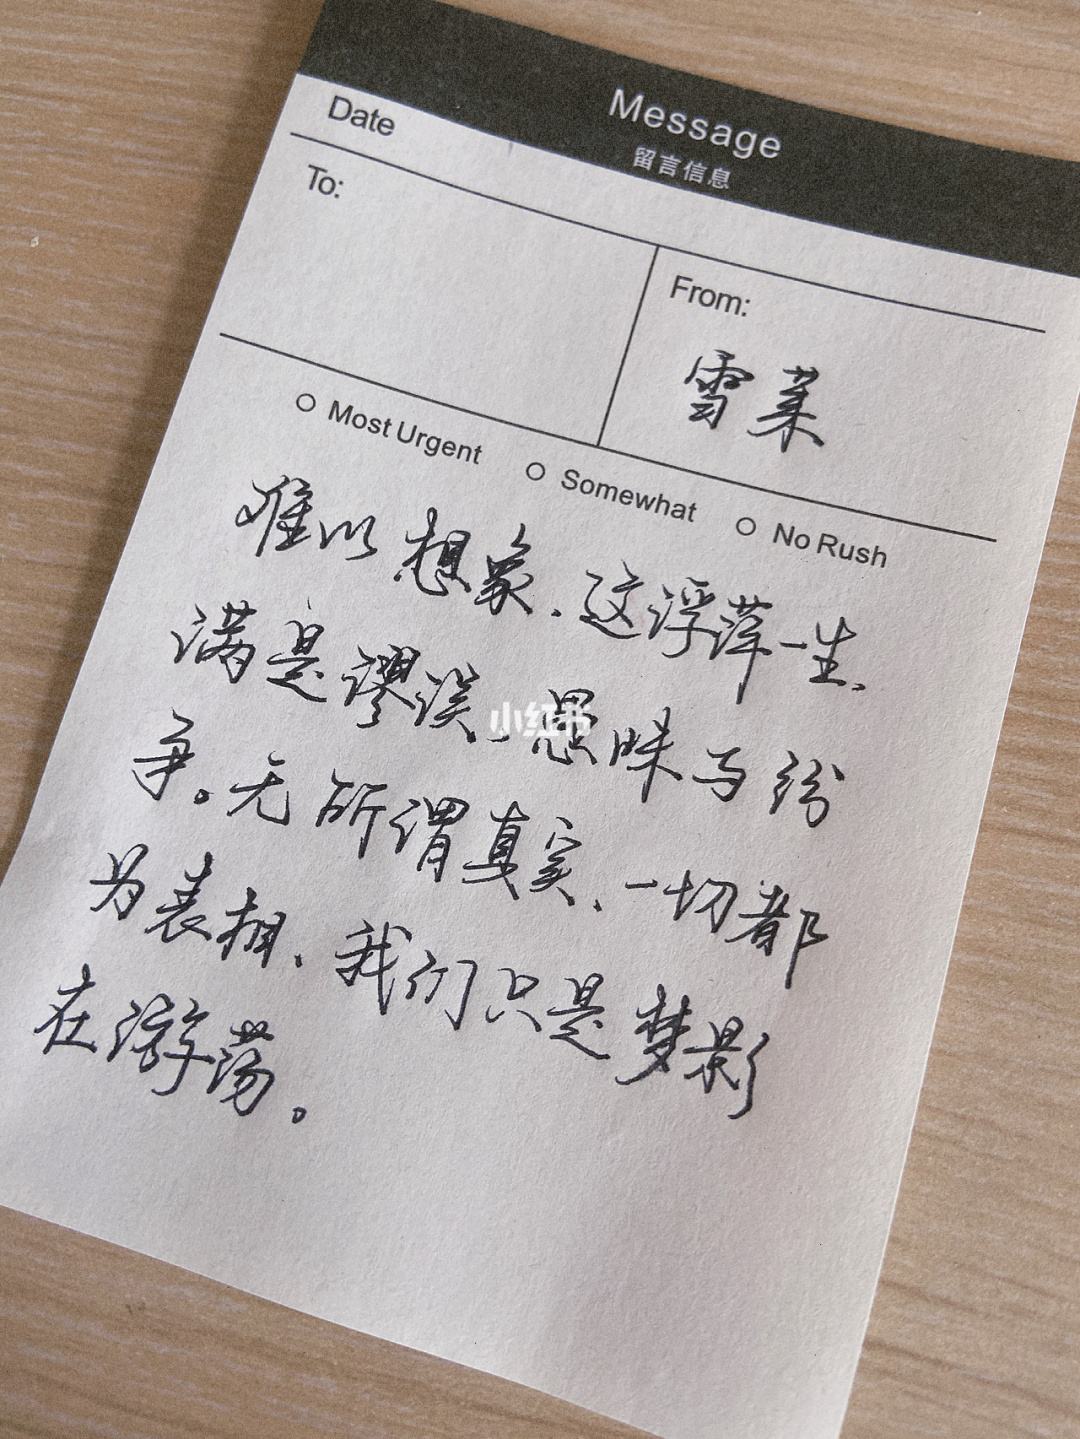 Message
留言信息
Date
To:
From:
雪莱
Most Urgent
Somewhat
No Rush
难以想象、这浮萍一生、
满是谬误、愚昧与纷
争。无所谓真实、一切都
为表相、我们只是梦影
在游荡。
小红书